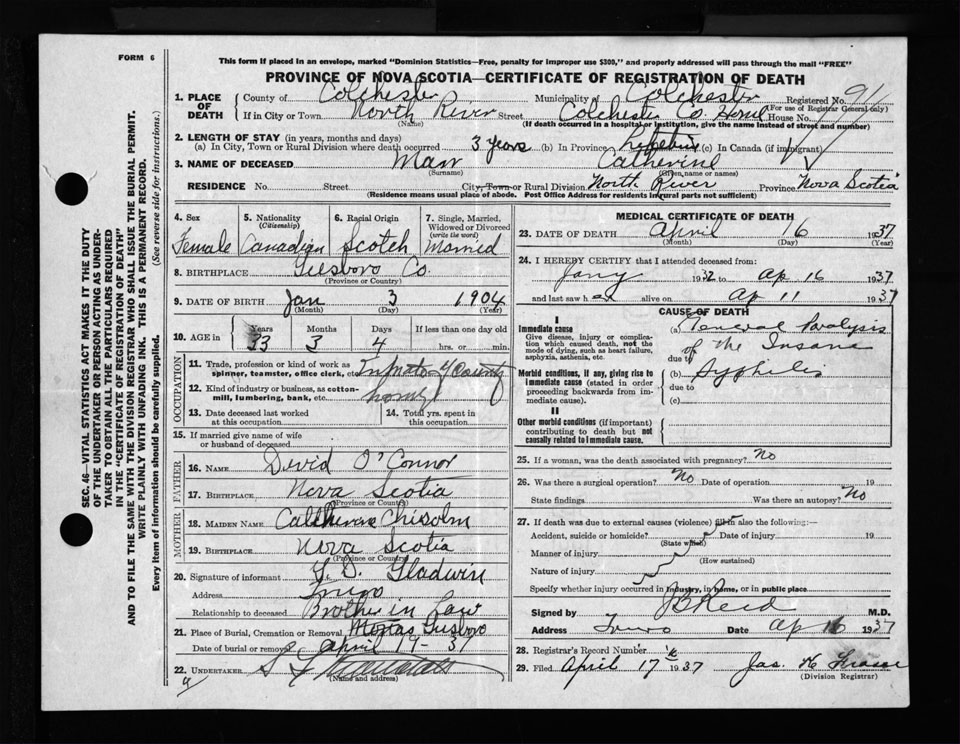 FORM 6
This form if placed in an envelope, marked "Dominion Statistics—Free, penalty for improper use $300," and properly addressed will pass through the mail "FREE"
PROVINCE OF NOVA SCOTIA—CERTIFICATE OF REGISTRATION OF DEATH
SEC. 46—VITAL STATISTICS ACT MAKES IT THE DUTY
OF THE UNDERTAKER OR PERSON ACTING AS UNDER-
TAKER TO OBTAIN ALL THE PARTICULARS REQUIRED
IN THE "CERTIFICATE OF REGISTRATION OF DEATH"
AND TO FILE THE SAME WITH THE DIVISION REGISTRAR WHO SHALL ISSUE THE BURIAL PERMIT.
WRITE PLAINLY WITH UNFADING INK. THIS IS A PERMANENT RECORD.
Every item of information should be carefully supplied. (See reverse side for instructions.)
1. PLACE OF DEATH County of Colchester Municipality of Colchester Registered No. 91
(For use of Registrar General only)
If in City or Town North River Street Colchester Co. Home House No.
(Name) (If death occurred in a hospital or institution, give the name instead of street and number)
2. LENGTH OF STAY (in years, months and days)
(a) In City, Town or Rural Division where death occurred 3 years (b) In Province Lifetime (c) In Canada (if immigrant)
3. NAME OF DECEASED Marr Catherine
(Surname) (Given name or names)
RESIDENCE No. Street City, Town or Rural Division North River Province Nova Scotia
(Residence means usual place of abode. Post Office Address for Residents in rural parts not sufficient)
4. Sex 5. Nationality (Citizenship) 6. Racial Origin 7. Single, Married, Widowed or Divorced (write the word)
Female Canadian Scotch Married
8. BIRTHPLACE Guysboro Co.
(Province or Country)
9. DATE OF BIRTH Jan 3 1904
(Month) (Day) (Year)
10. AGE in Years Months Days If less than one day old
33 3 4 hrs. or min.
OCCUPATION
11. Trade, profession or kind of work as spinner, teamster, office clerk, etc. Inmate of County
12. Kind of industry or business, as cotton-mill, lumbering, bank, etc. home
13. Date deceased last worked at this occupation 14. Total yrs. spent in this occupation
15. If married give name of wife or husband of deceased
FATHER
16. NAME David O'Connor
17. BIRTHPLACE Nova Scotia
(Province or Country)
MOTHER
18. MAIDEN NAME Catherine Chisolm
19. BIRTHPLACE Nova Scotia
(Province or Country)
20. Signature of informant Gladwin
Address Truro
Relationship to deceased Brother in law
21. Place of Burial, Cremation or Removal Guysboro
Date of burial or removal April 17-37
22. UNDERTAKER
(Name and address)
MEDICAL CERTIFICATE OF DEATH
23. DATE OF DEATH April 16 1937
(Month) (Day) (Year)
24. I HEREBY CERTIFY that I attended deceased from:
Jany 1932 to Ap 16 1937
and last saw her alive on Ap 11 1937
CAUSE OF DEATH
I
Immediate cause
Give disease, injury or complication which caused death, not the mode of dying, such as heart failure, asphyxia, asthenia, etc.
(a) General Paralysis
of the Insane
due to
Morbid conditions, if any, giving rise to immediate cause (stated in order proceeding backwards from immediate cause).
(b) Syphilis
due to
(c)
II
Other morbid conditions (if important) contributing to death but not causally related to immediate cause.
25. If a woman, was the death associated with pregnancy? No
26. Was there a surgical operation? No Date of operation 19
State findings Was there an autopsy? No
27. If death was due to external causes (violence) fill in also the following:—
Accident, suicide or homicide? Date of injury 19
(State which)
Manner of injury
(How sustained)
Nature of injury
Specify whether injury occurred in industry, in home, or in public place
Signed by J B Reid M.D.
Address Truro Date Ap 16 1937
28. Registrar's Record Number
29. Filed April 17 1937 Jas. H Fraser
(Division Registrar)